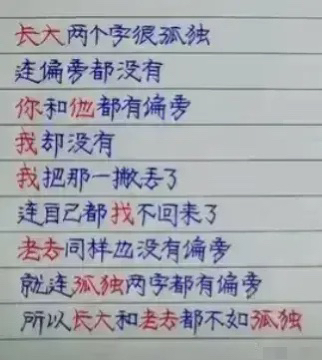 长大两个字很孤独
连偏旁都没有
你和他都有偏旁
我却没有
我把那一撇丢了
连自己都找不回来了
老去同样也没有偏旁
就连孤独两字都有偏旁
所以长大和老去都不如孤独